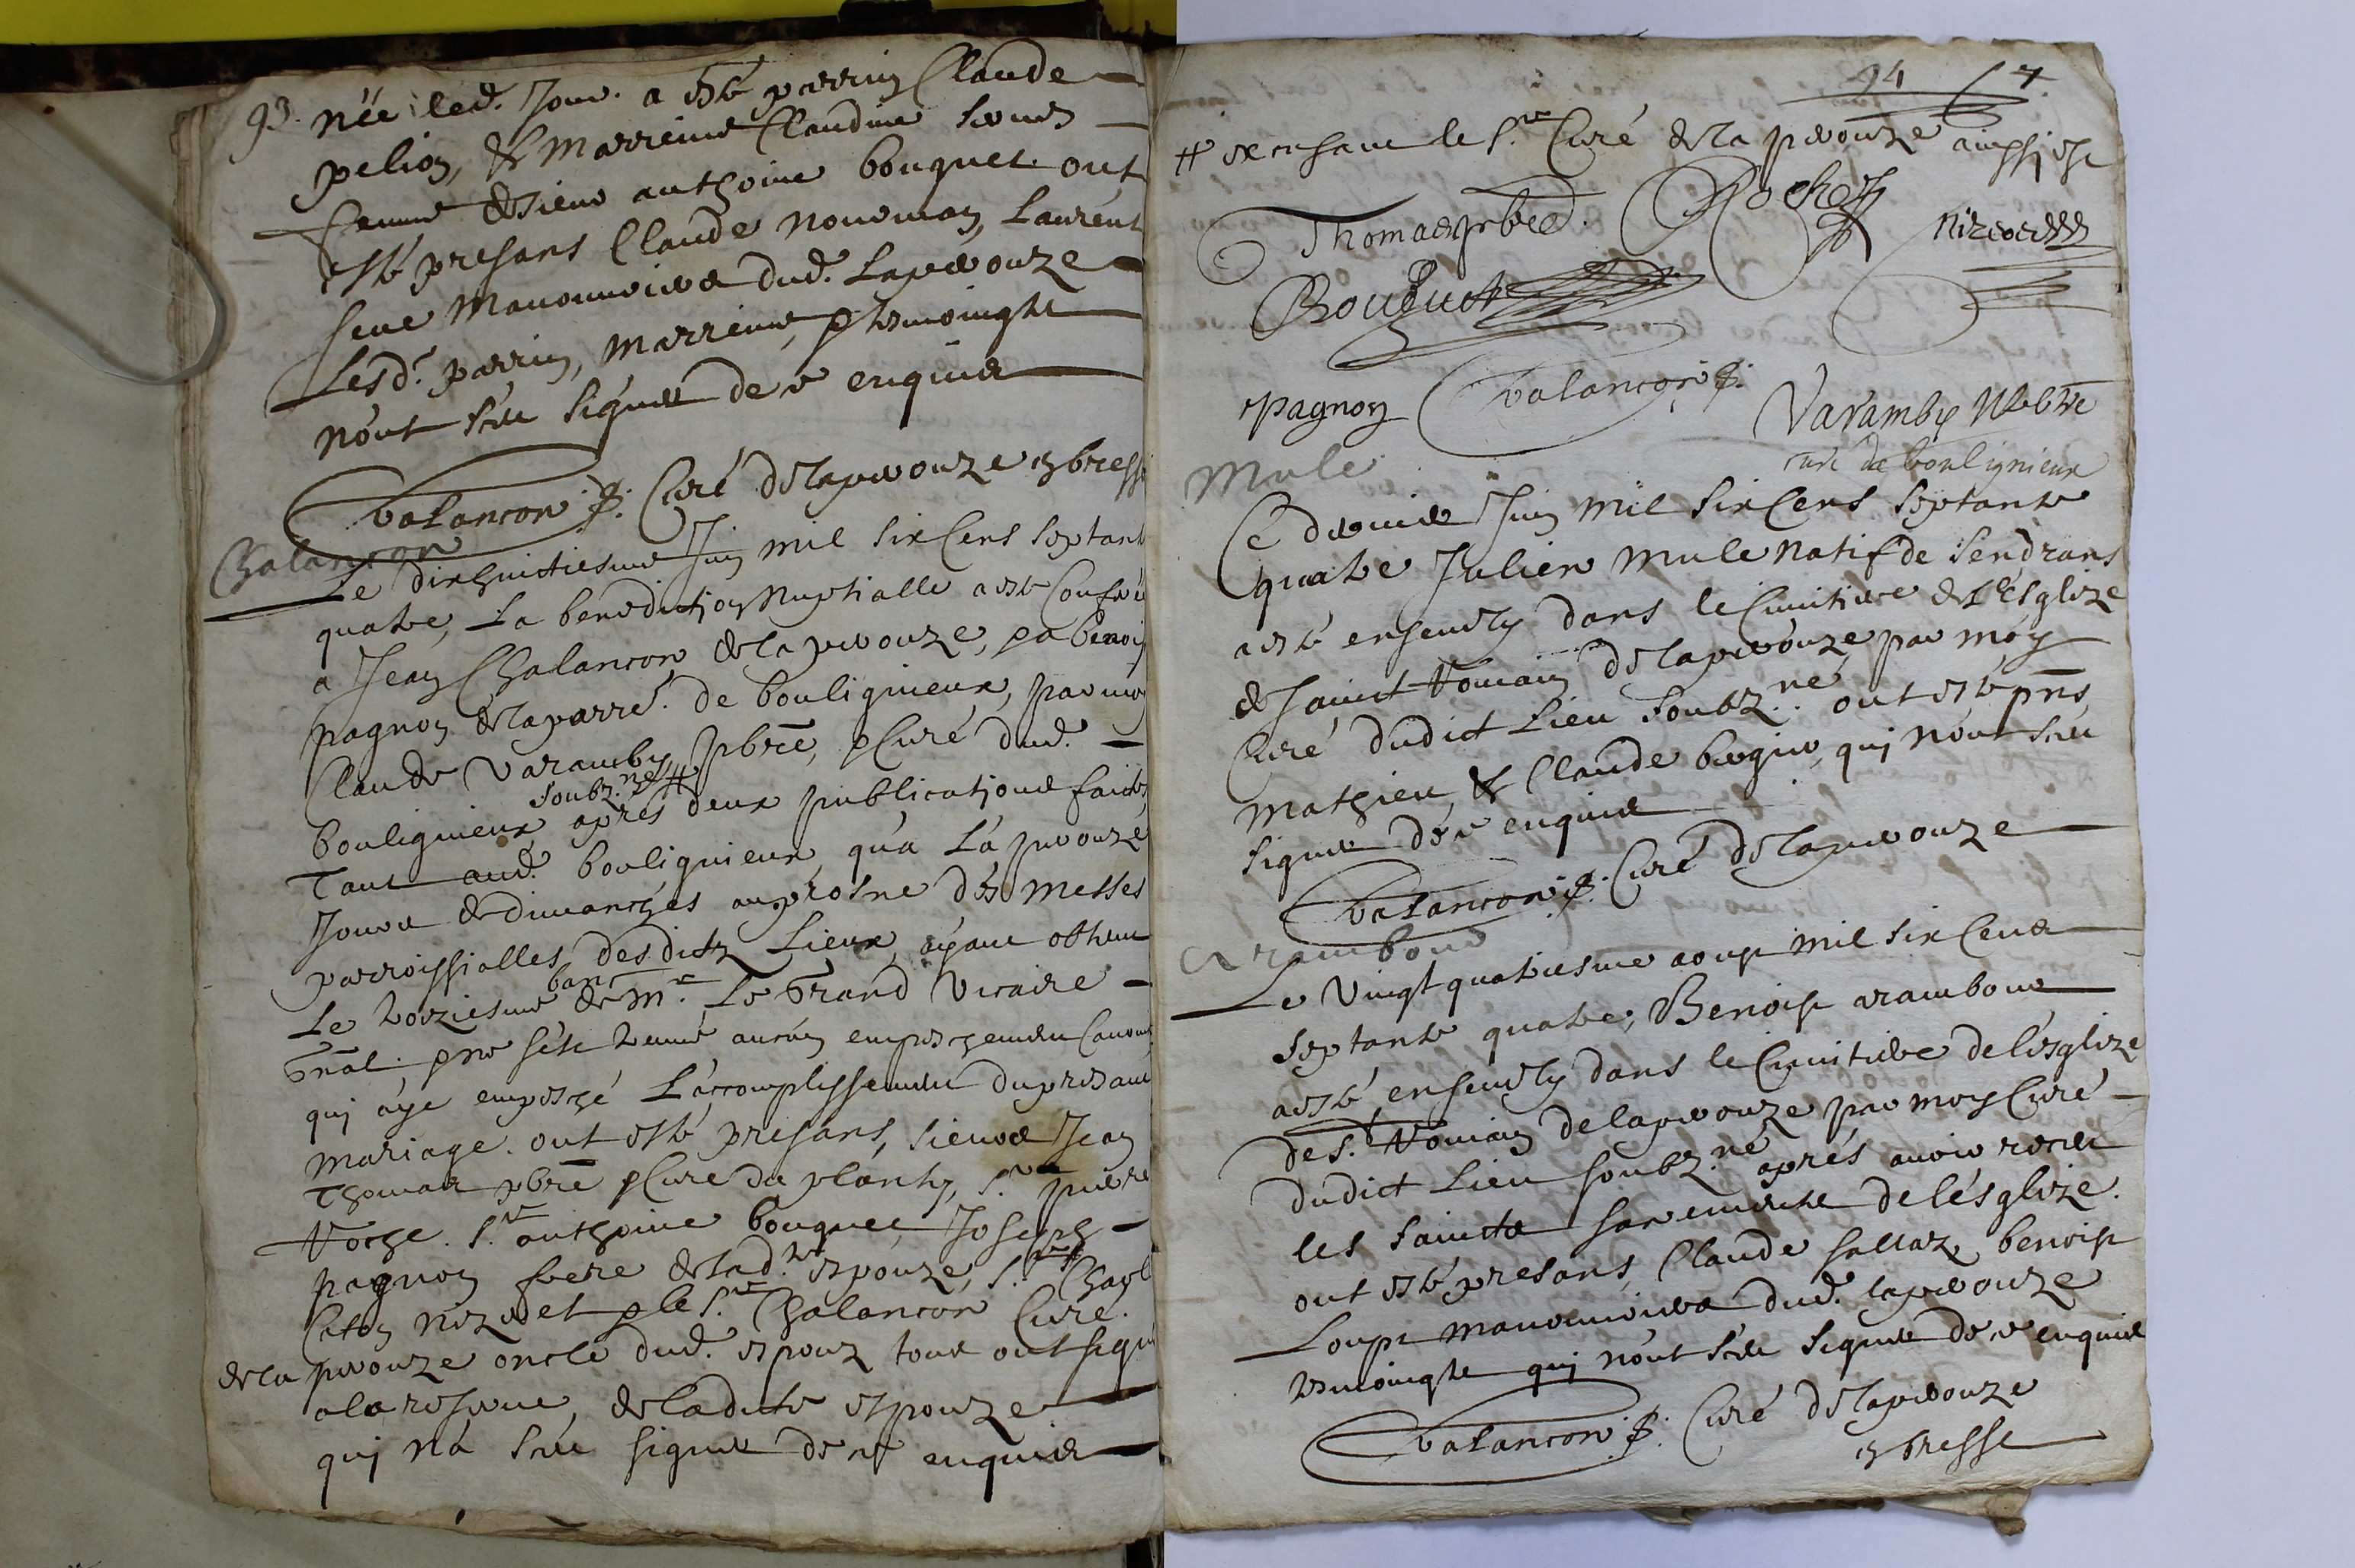 93.
née led. Jour. a esté parrin Claude
pelion, & Marreine Claudine
femme de sieur anthoine bouquet ont
esté presans Claude nouvman, Laurent
seve Manouvriers dud. Laperouze
Lesd. parrin, marreine, & tesmoingts
n'ont sceu signer de ce enquis
Chalancon p. Curé de Laperouze en bresse
Chalancon
Le dixhuictiesme Juin mil six Cens septant
quatre, La benediction Nuptialle a esté Conferé
a Jean Chalancon de la perouze, & a benoiste
pagnon de la parre. de bouligneux, par moy
Claude Varamby pbre, & Curé dud.
soubz.né #
bouligneux apres deux publications faictes
Tant aud. bouligneux qu'a La perouze
Jours de dimanches au prosne des Messes
parroissialles desdictz Lieux, ayant obtenu
banc
Le troiziesme de Mr. Le Grand Vicaire
Gnal. & ne s'est treuvé aucun empeschement Canon
qui aye empesché L'accomplissement du presant
Mariage. ont esté presans, sieurs Jean
Thomas pbre & Curé du plantay, Sr. pierre
Roche. Sr. anthoine bouquet, Joseph
pagnon frere de lad.te espouze, Sr. Charl
Caton nizeret & le Sr. Chalancon Curé.
de la perouze oncle dud. espouz tous ont signé
a la reserve, de ladicte espouze
qui n'a sceu signer de ce enquis
94 47
# le Sr. Curé de la perouze ainssi est
Thomas pbre. Roche
Nizeret
Bouquet
Pagnon Chalancon p.
Varamby pbtre
curé de bouligneux
Mule
Ce dernier Juin mil six Cens septante
quatre Julien Mule Natif de Sendrans
a esté ensevely dans le Cimitiere de L'Esglize
de Sainct Romain de Laperouze par moy
Curé dudict Lieu soubz.né ont esté pns
Mathieu, & Claude bergier, qui n'ont sceu
signer de ce enquis
Chalancon p. Curé de Laperouze
arambour
Le Vingt quatriesme aoust mil six Cens
septante quatre, Benoist arambour
a esté ensevely dans le Cimitiere de l'esglize
de St. Romain de laperouze par moy Curé
dudict Lieu soubz.né apres avoir receu
les saincts sacrements de l'ésglize.
ont esté presans, Claude sallaz, benoist
Loups manouvriers dud. laperouze
tesmoingts qui n'ont sceu signer de ce enquis
Chalancon p. Curé de Laperouze
en bresse